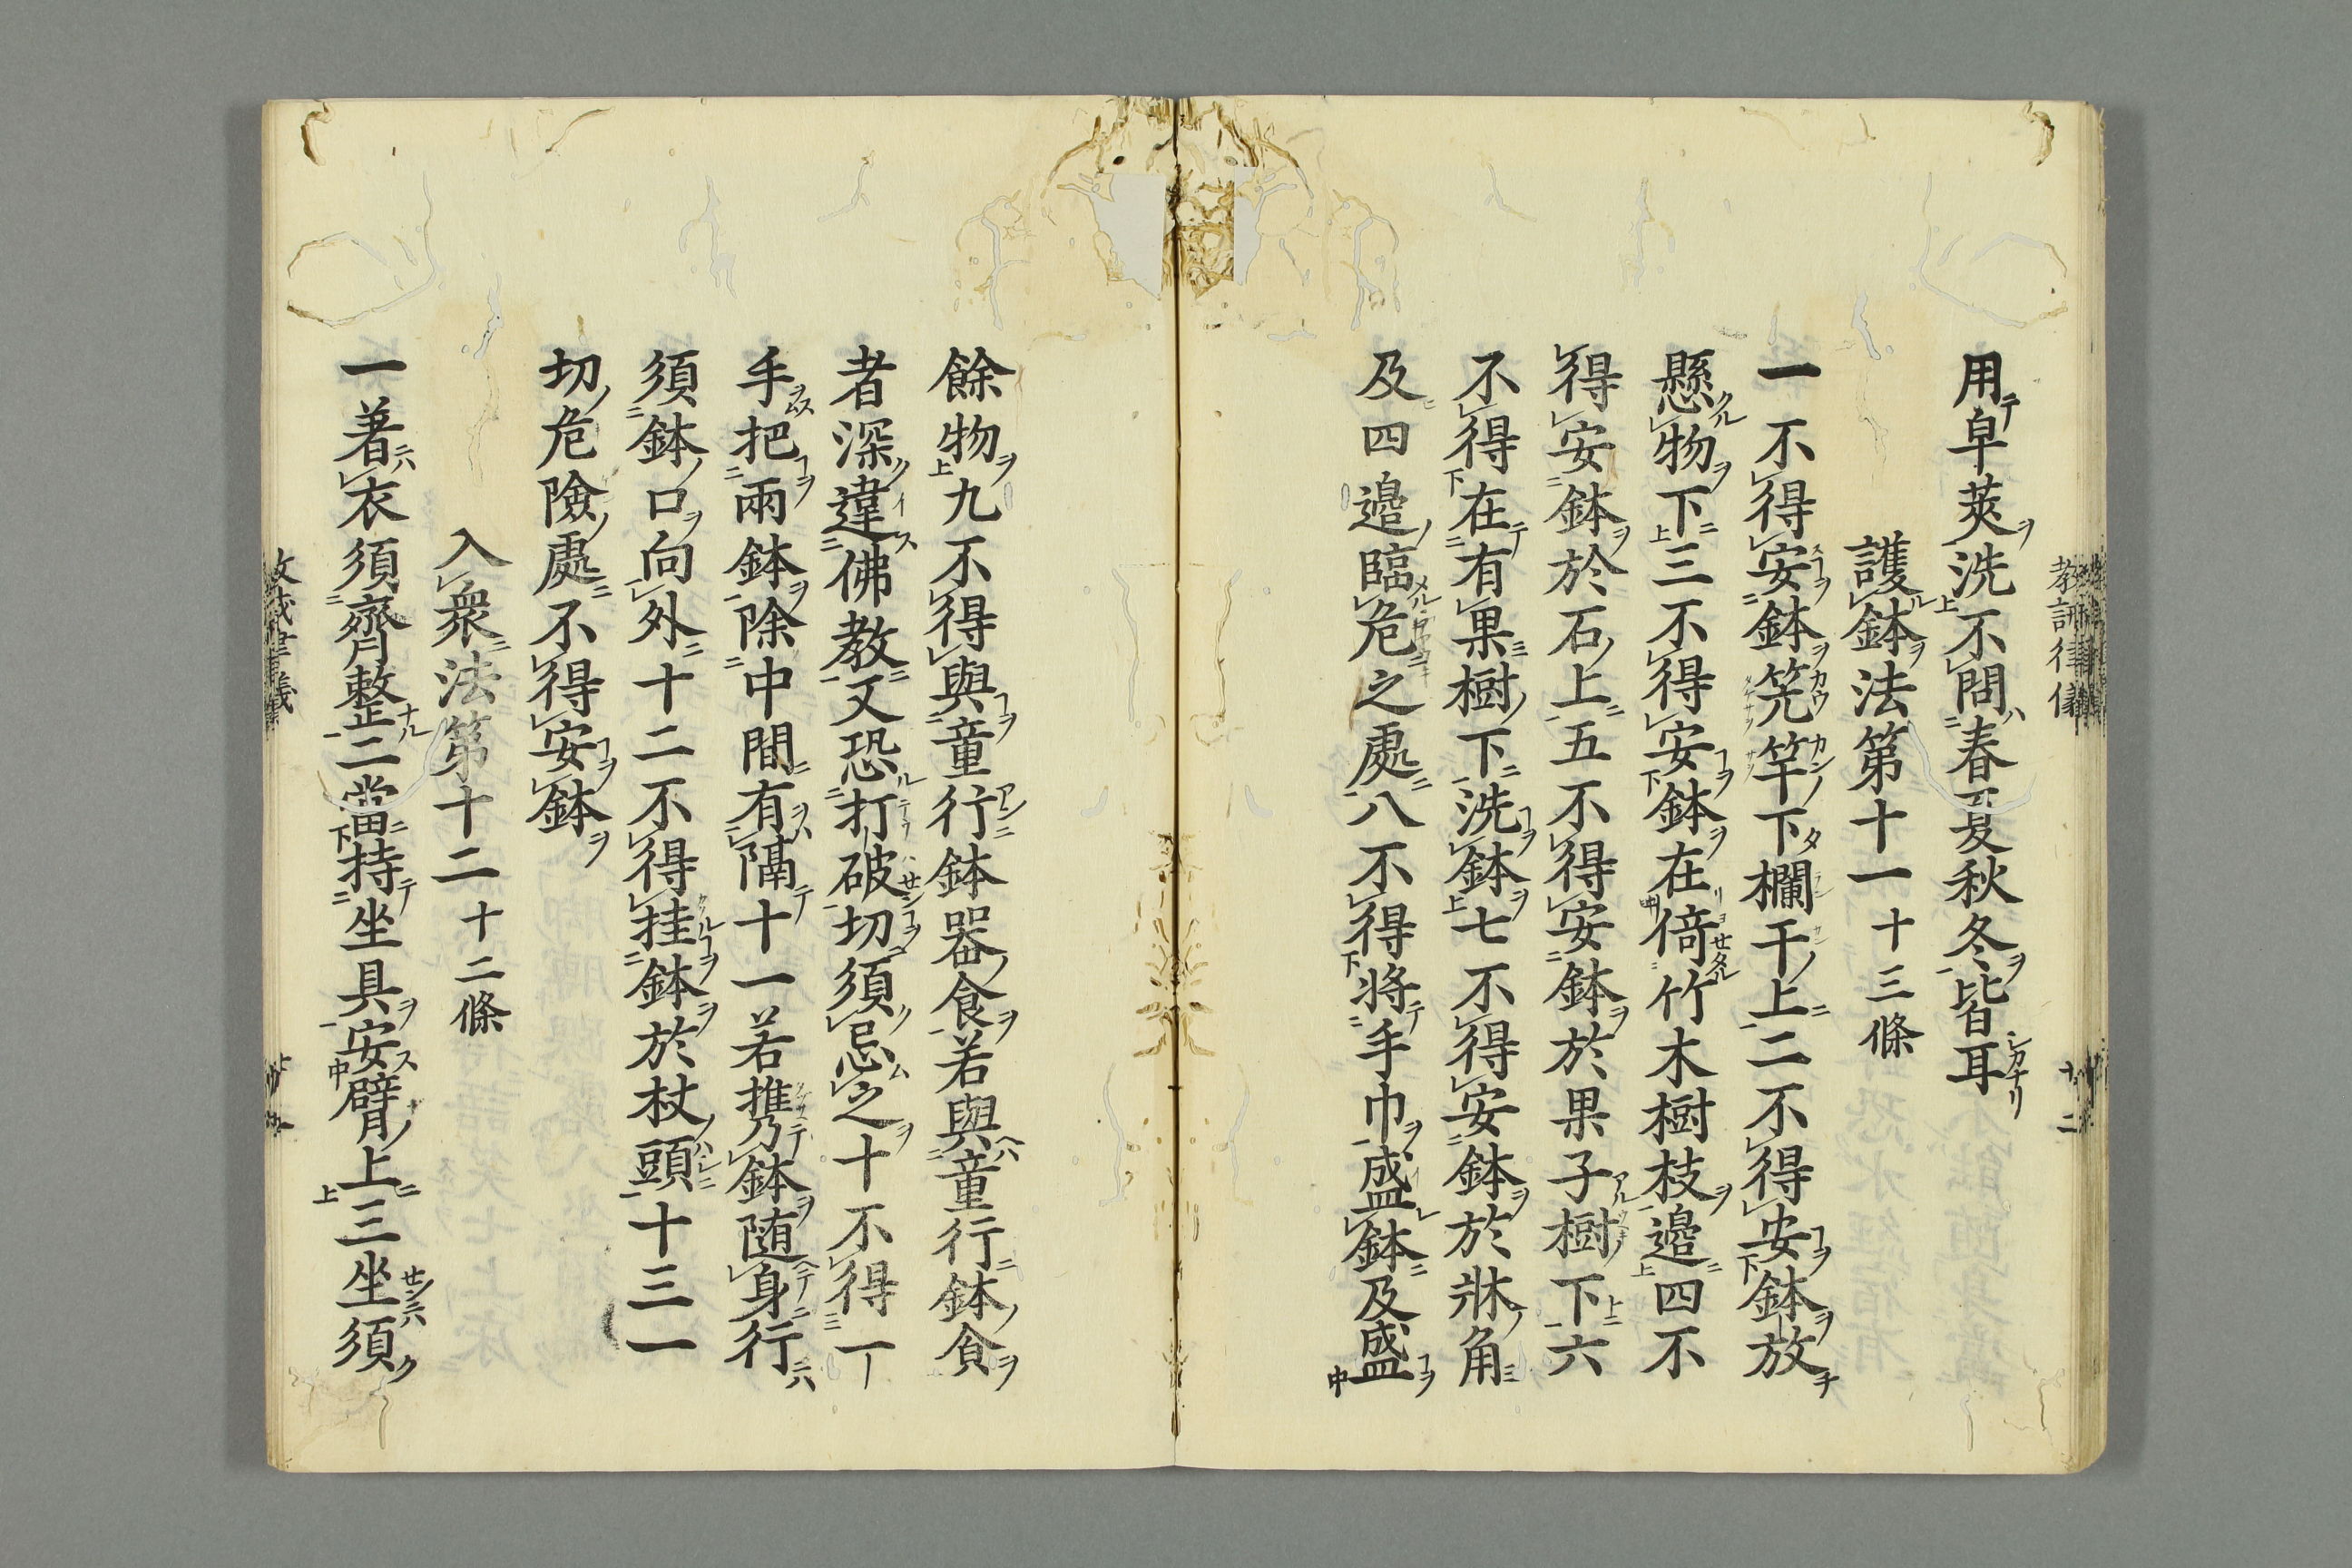 用皁莢洗不問春夏秋冬皆耳
護鉢法第十一 十三條
一不得安鉢筦竿下欄干上二不得安鉢放
懸物下三不得安鉢在倚竹木樹枝邉四不
得安鉢於石上五不得安鉢於果子樹下六
不得在有果樹下洗鉢七不得安鉢於牀角
及四邉臨危之處八不得将手巾盛鉢及盛
餘物九不得與童行鉢器食若與童行鉢食
者深違佛教又恐打破切須忌之十不得一
手把兩鉢除中間有隔十一若携鉢随身行
須鉢口向外十二不得挂鉢於杖頭十三一
切危險處不得安鉢
入衆法第十二 十二條
一著衣須齊整二當持坐具安臂上三坐須
教誡律儀
十二